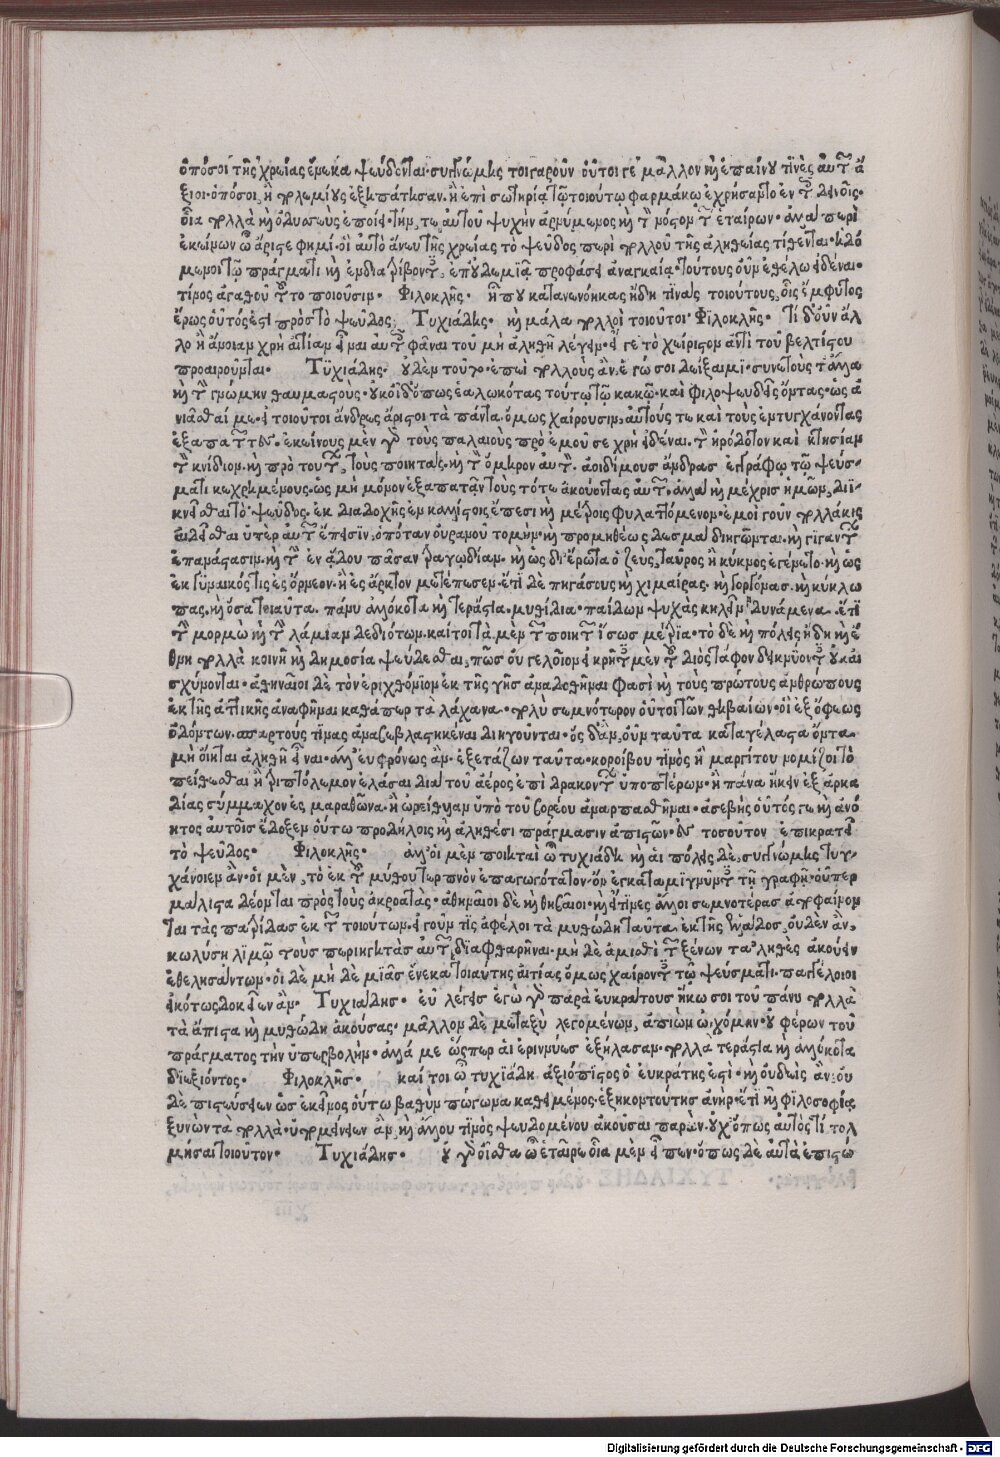 ὁπόσοι τῆς χρείας ἕνεκα ψεύδονται. συγγνώμης τοιγαροῦν οὗτοί γε μᾶλλον ἢ ἐπαίνου τινὲς αὐτῶν ἄ
ξιοι. ὁπόσοι ἢ πολεμίους ἐξηπάτησαν. ἢ ἐπὶ σωτηρίᾳ τῷ τοιούτῳ φαρμάκῳ ἐχρήσαντο ἐν τοῖς δεινοῖς.
οἷα πολλὰ καὶ ὀδυσσεὺς ἐποίει. τήν τε αὑτοῦ ψυχὴν ἀρνύμενος καὶ τὸν νόστον τῶν ἑταίρων. ἀλλὰ περὶ
ἐκείνων ὦ ἄριστε φημί. οἳ αὐτὸ ἄνευ τῆς χρείας τὸ ψεῦδος περὶ πολλοῦ τῆς ἀληθείας τίθενται. ἡδό
μενοι τῷ πράγματι καὶ ἐνδιατρίβοντες, ἐπ' οὐδεμιᾷ προφάσει ἀναγκαίᾳ. τούτους οὖν ἐθέλω εἰδέναι.
τίνος ἀγαθοῦ τοῦτο ποιοῦσιν. Φιλοκλῆς. ἦ που κατανενόηκας ἤδη τινὰς τοιούτους, οἷς ἔμφυτος
ἔρως οὗτός ἐστι πρὸς τὸ ψεῦδος. Τυχιάδης. καὶ μάλα πολλοὶ τοιοῦτοι. Φιλοκλῆς. τί δ' οὖν ἄλ
λο ἢ ἄνοιαν χρὴ αἰτίαν εἶναι αὐτοῖς φάναι τοῦ μὴ ἀληθῆ λέγειν. εἴ γε τὸ χείριστον ἀντὶ τοῦ βελτίστου
προαιροῦνται. Τυχιάδης. οὐδὲν τοῦτο. ἐπεὶ πολλοὺς ἂν ἐγώ σοι δείξαιμι. συνετοὺς τἄλλα
καὶ τὴν γνώμην θαυμαστούς. οὐκ οἶδ' ὅπως ἑαλωκότας τούτῳ τῷ κακῷ. καὶ φιλοψευδεῖς ὄντας. ὡς ἀ
νιᾶσθαί με. εἰ τοιοῦτοι ἄνδρες ἄριστοι τὰ πάντα. ὅμως χαίρουσιν, αὑτούς τε καὶ τοὺς ἐντυγχάνοντας
ἐξαπατῶντες. ἐκείνους μὲν γὰρ τοὺς παλαιοὺς πρὸ ἐμοῦ σε χρὴ εἰδέναι. τὸν ἡρόδοτον καὶ κτησίαν
τὸν κνίδιον. καὶ πρὸ τούτων, τοὺς ποιητάς. καὶ τὸν ὅμηρον αὐτόν. ἀοιδίμους ἄνδρας ἐγγράφῳ τῷ ψεύσ-
ματι κεχρημένους. ὡς μὴ μόνον ἐξαπατᾶν τοὺς τότε ἀκούοντας αὐτῶν. ἀλλὰ καὶ μέχρις ἡμῶν, διϊ-
κνεῖσθαι τὸ ψεῦδος. ἐκ διαδοχῆς ἐν καλλίστοις ἔπεσι καὶ μέτροις φυλαττόμενον. ἐμοὶ γοῦν πολλάκις
αἰδεῖσθαι ὑπὲρ αὐτῶν ἔπεισιν, ὁπόταν οὐρανοῦ τομὴν. καὶ προμηθέως δεσμὰ διηγῶνται. καὶ γιγάντων
ἐπανάστασιν. καὶ τὴν ἐν ᾅδου πᾶσαν τραγῳδίαν. καὶ ὡς δι' ἔρωτα ὁ ζεὺς, ταῦρος ἢ κύκνος ἐγένετο. καὶ ὡς
ἐκ γυναικός τις ἐς ὄρνεον. ἢ ἐς ἄρκτον μετέπεσεν. ἔτι δὲ πηγάσους καὶ χιμαίρας. καὶ γοργόνας. καὶ κύκλω
πας. καὶ ὅσα τοιαῦτα. πάνυ ἀλλόκοτα καὶ τεράστια. μυθίδια. παίδων ψυχὰς κηλεῖν δυνάμενα. ἔτι
τὴν μορμὼ καὶ τὴν λάμιαν δεδιότων. καίτοι τὰ μὲν τῶν ποιητῶν ἴσως μέτρια. τὸ δὲ καὶ πόλεις ἤδη καὶ ἔ
θνη πολλὰ κοινῇ καὶ δημοσίᾳ ψεύδεσθαι, πῶς οὐ γελοῖον εἰ κρῆτες μὲν τοῦ διὸς τάφον δεικνύοντες οὐκ αἰ
σχύνονται. ἀθηναῖοι δὲ τὸν ἐριχθόνιον ἐκ τῆς γῆς ἀναδοθῆναι φασὶ καὶ τοὺς πρώτους ἀνθρώπους
ἐκ τῆς ἀττικῆς ἀναφῆναι καθάπερ τὰ λάχανα. πολὺ σεμνότερον οὗτοι τῶν θηβαίων. οἳ ἐξ ὄφεως
ὀδόντων. σπαρτούς τινας ἀναβεβλαστηκέναι διηγοῦνται. ὃς δ' ἂν, οὖν ταῦτα καταγέλαστα ὄντα
μὴ οἴηται ἀληθῆ εἶναι. ἀλλ' εὐφρόνως ἂν. ἐξετάζων ταῦτα. κοροίβου τινὸς ἢ μαργίτου νομίζοι τὸ
πείθεσθαι ἢ τριπτόλεμον ἐλάσαι διὰ τοῦ ἀέρος ἐπὶ δρακόντων ὑποπτέρων. ἢ πᾶνα ἥκειν ἐξ ἀρκα
δίας σύμμαχον ἐς μαραθῶνα. ἢ ὠρείθυιαν ὑπὸ τοῦ βορέου ἁναρπασθῆναι. ἀσεβὴς οὗτός γε καὶ ἀνό
ητος αὐτοῖς ἔδοξεν οὕτω προδήλοις καὶ ἀληθέσι πράγμασιν ἀπιστῶν. ἐς τοσοῦτον ἐπικρατεῖ
τὸ ψεῦδος. Φιλοκλῆς. ἀλλ' οἱ μὲν ποιηταὶ ὦ τυχιάδη καὶ αἱ πόλεις δὲ, συγγνώμης τυγ-
χάνοιεν ἂν. οἱ μὲν, τὸ ἐκ τοῦ μύθου τερπνὸν ἐπαγωγότατον. ὃν ἐγκαταμιγνύντες τῇ γραφῇ. οὗπερ
μάλιστα δέονται πρὸς τοὺς ἀκροατάς. ἀθηναῖοι δὲ καὶ θηβαῖοι. καὶ εἴ τινες ἄλλοι σεμνοτέρας ἀποφαίνον
ται τὰς πατρίδας ἐκ τῶν τοιούτων. εἰ γοῦν τις ἀφέλοι τὰ μυθώδη ταῦτα. ἐκ τῆς ἑλλάδος, οὐδὲν ἂν,
κωλύσῃ λιμῷ τοὺς περιηγητὰς αὐτῶν διαφθαρῆναι. μηδὲ ἀμισθὶ τῶν ξένων τἀληθὲς ἀκούειν
ἐθελησάντων. οἱ δὲ μηδεμιᾶς ἕνεκα τοιαύτης αἰτίας ὅμως χαίροντες τῷ ψεύσματι. παγγέλοιοι
εἰκότως δοκεῖεν ἄν. Τυχιάδης. εὖ λέγεις ἐγὼ γὰρ παρὰ εὐκράτους ἥκω σοι τοῦ πάνυ πολλὰ
τὰ ἄπιστα καὶ μυθώδη ἀκούσας. μᾶλλον δὲ μεταξὺ λεγομένων, ἀπιὼν ᾠχόμην. οὐ φέρων τοῦ
πράγματος τὴν ὑπερβολήν. ἀλλά με ὥσπερ αἱ ἐρινύες ἐξήλασαν. πολλὰ τεράστια καὶ ἀλλόκοτα
διεξιόντος. Φιλοκλῆς. καίτοι ὦ τυχιάδη ἀξιόπιστος ὁ εὐκράτης ἐστὶ. καὶ οὐδεὶς ἂν. οὐ
δὲ πιστεύσειεν ὡς ἐκεῖνος οὕτω βαθὺν πώγωνα καθειμένος. ἑξηκοντούτης ἀνήρ. ἔτι καὶ φιλοσοφίᾳ
ξυνὼν τὰ πολλὰ. ὑπομείνειεν ἂν, καὶ ἄλλου τινὸς ψευδομένου ἀκοῦσαι παρών. οὐχ ὅπως αὐτός τι τολ
μῆσαι τοιοῦτον. Τυχιάδης. οὐ γὰρ οἶσθα ὦ ἑταῖρε οἷα μὲν εἶπεν. ὅπως δὲ αὐτὰ ἐπιστώ
Digitalisierung gefördert durch die Deutsche Forschungsgemeinschaft - DFG